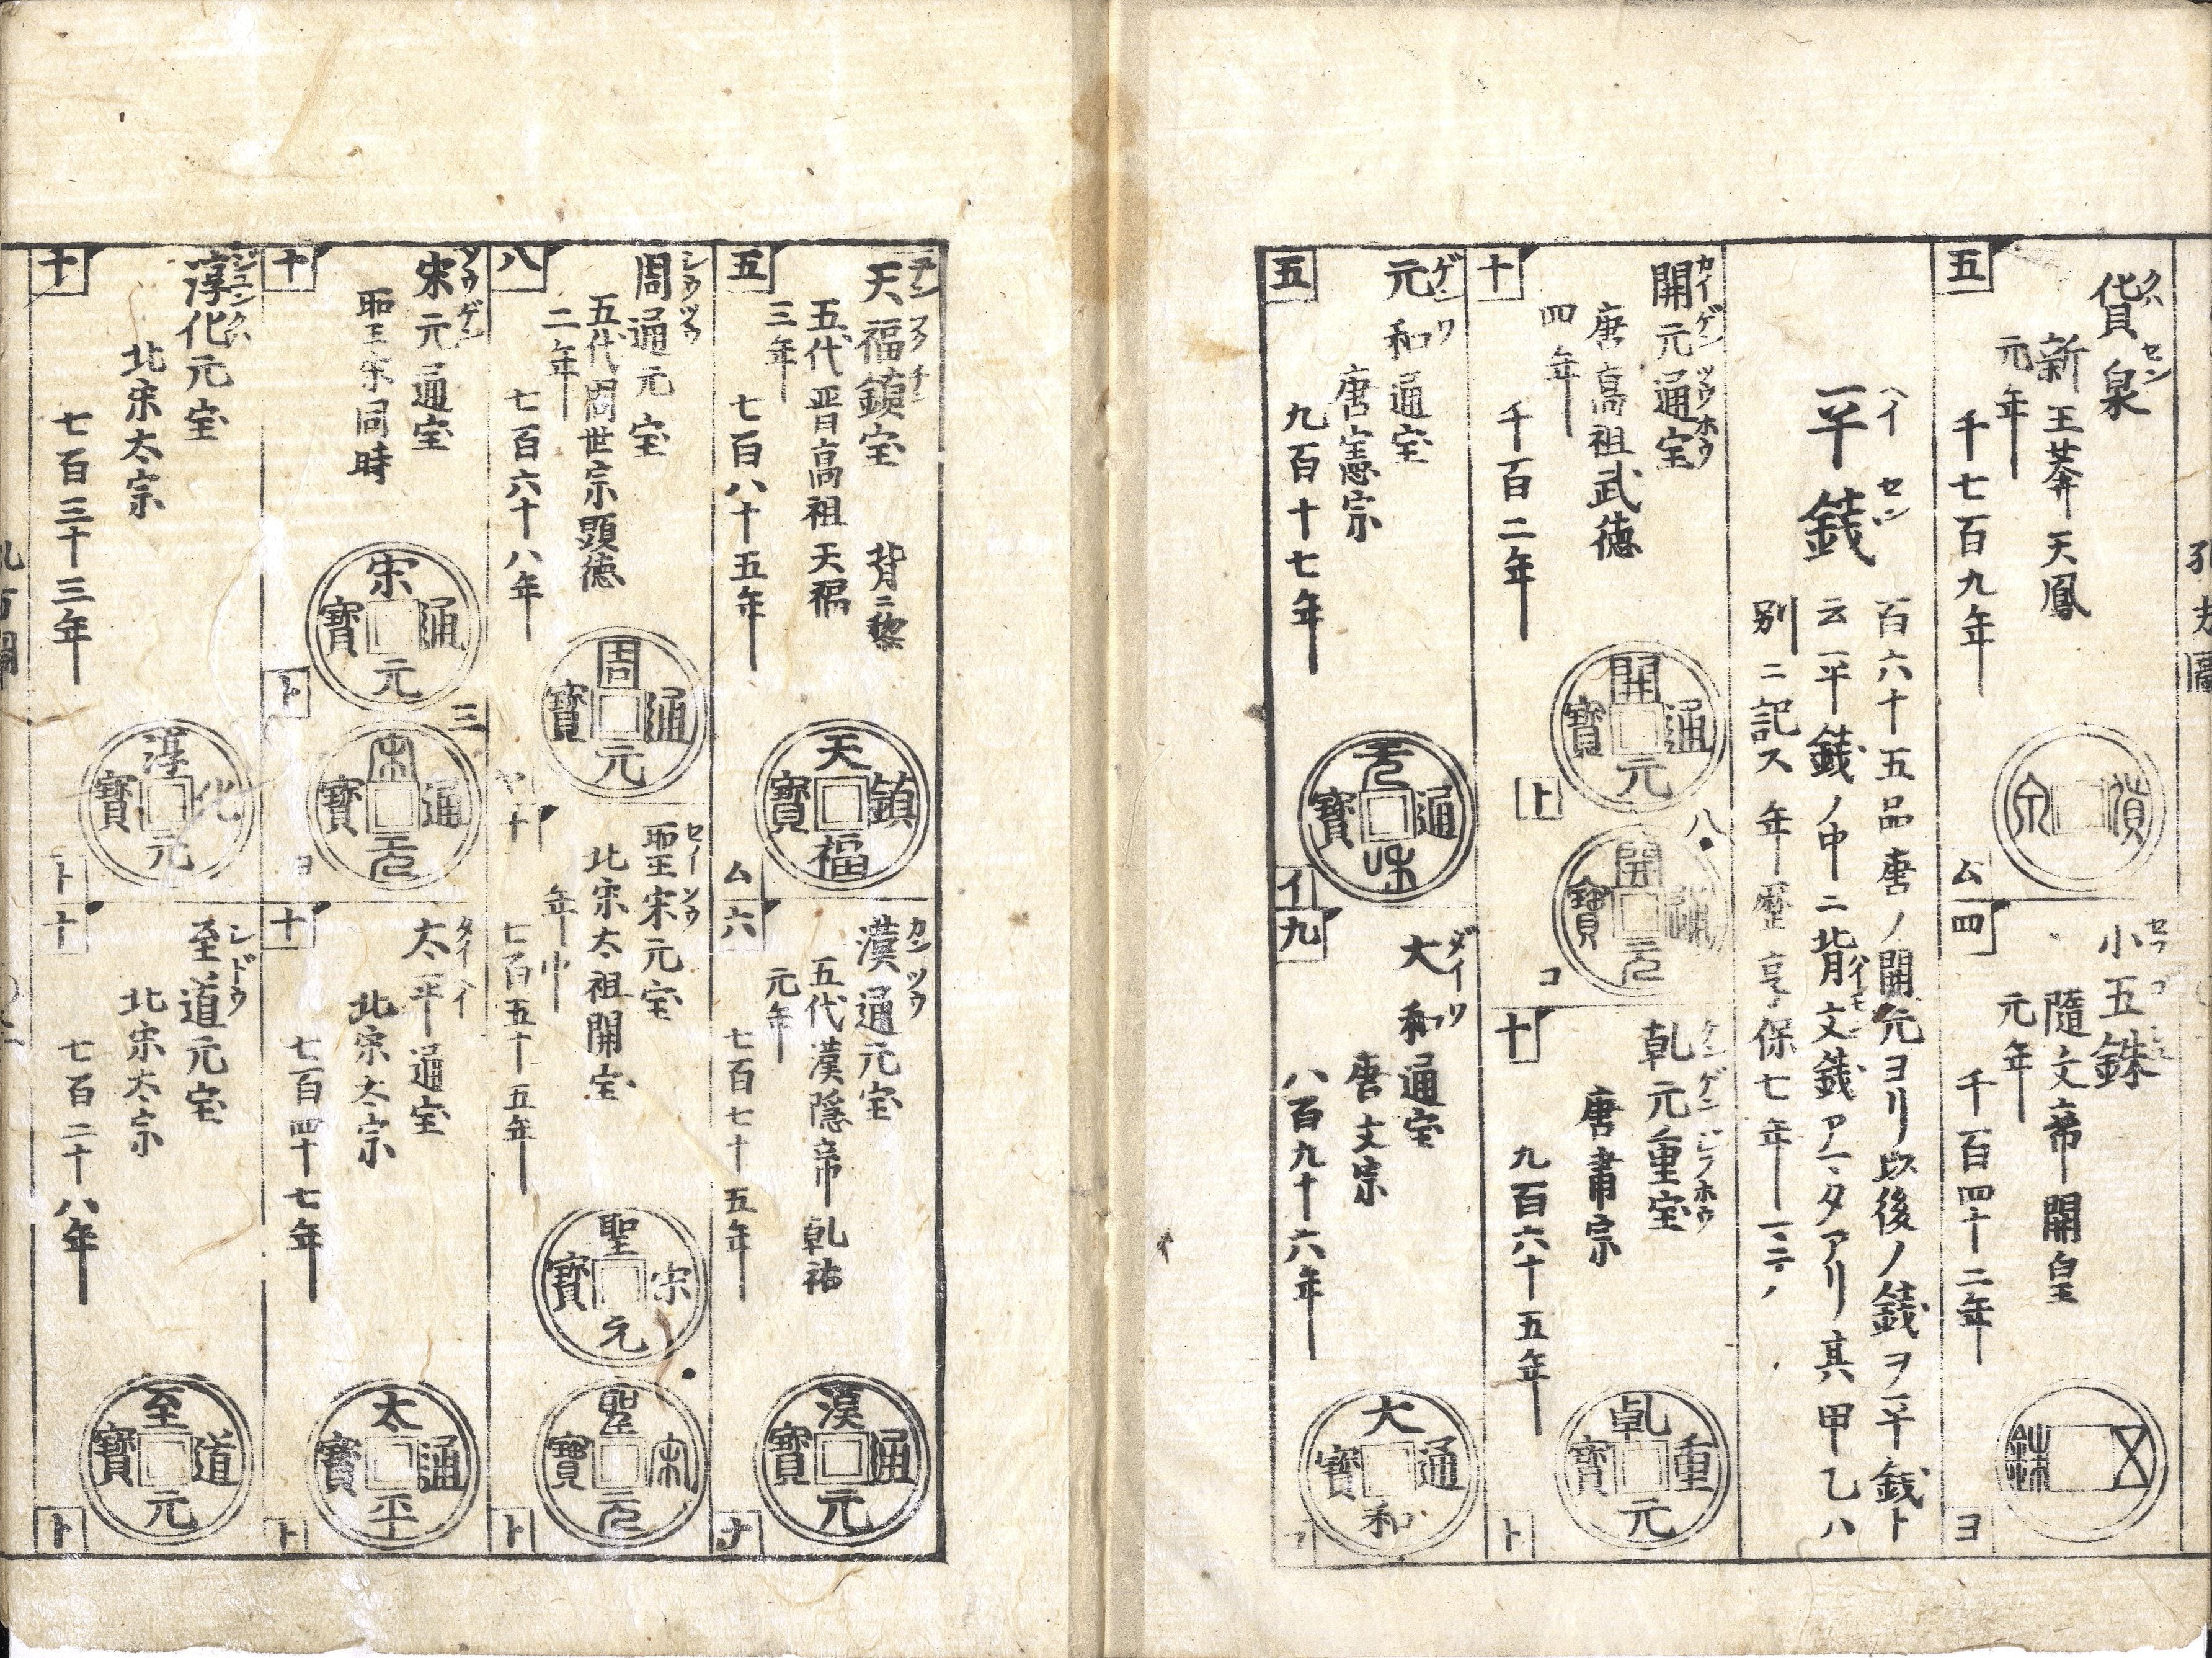 貨泉
クハセン
新王莽天鳳
元年
五
千七百九年
貨泉
ム
小五銖
隨文帝開皇
元年
四
千百四十二年
五銖
ヨ
平銭
ヘイセン
百六十五品唐ノ開元ヨリ以後ノ銭ヲ平銭ト
云平銭ノ中ニ背文銭アマタアリ其甲乙ハ
別ニ記ス年歴享保七年
開元通宝
カイゲンツウホウ
唐高祖武徳
四年
十
千百二年
開元通寶
上
八
開元通寶
コ
乾元重宝
唐肅宗
十
九百六十五年
乾元重寶
ト
元和通宝
ゲンワ
唐憲宗
五
九百十七年
元和通寶
イ
大和通宝
ダイワ
唐文宗
九
八百九十六年
大和通寶
天福鎮宝
背ニ黎
五代晋高祖天福
三年
五
七百八十五年
天福鎮寶
ム
漢通元宝
カンツウ
五代漢隠帝乾祐
元年
六
七百七十五年
漢通元寶
ナ
周通元宝
シウツウ
五代周世宗顕徳
二年
八
七百六十八年
周通元寶
聖宋元宝
セーソウ
北宋太祖開宝
年中
十
七百五十五年
聖宋元寶
聖宋元寶
ト
宋元通宝
ソウゲン
聖宋同時
十
宋元通寶
ト
三
宋元通寶
ヨ
太平通宝
タイヘイ
北宋太宗
十
七百四十七年
太平通寶
ト
淳化元宝
ジュンクハ
北宋太宗
十
七百三十三年
淳化元寶
ト
至道元宝
シドウ
北宋太宗
十
七百二十八年
至道元寶
ト